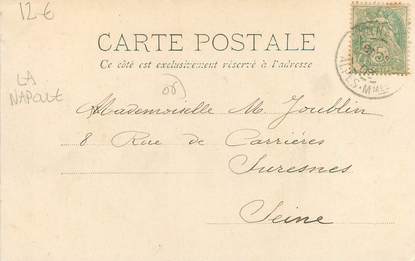 12-€
CARTE POSTALE
Ce côté est exclusivement réservé à l'adresse
LA
NAPOULE
Mademoiselle M. Joublin
8 Rue de Carrières
Suresnes
Seine